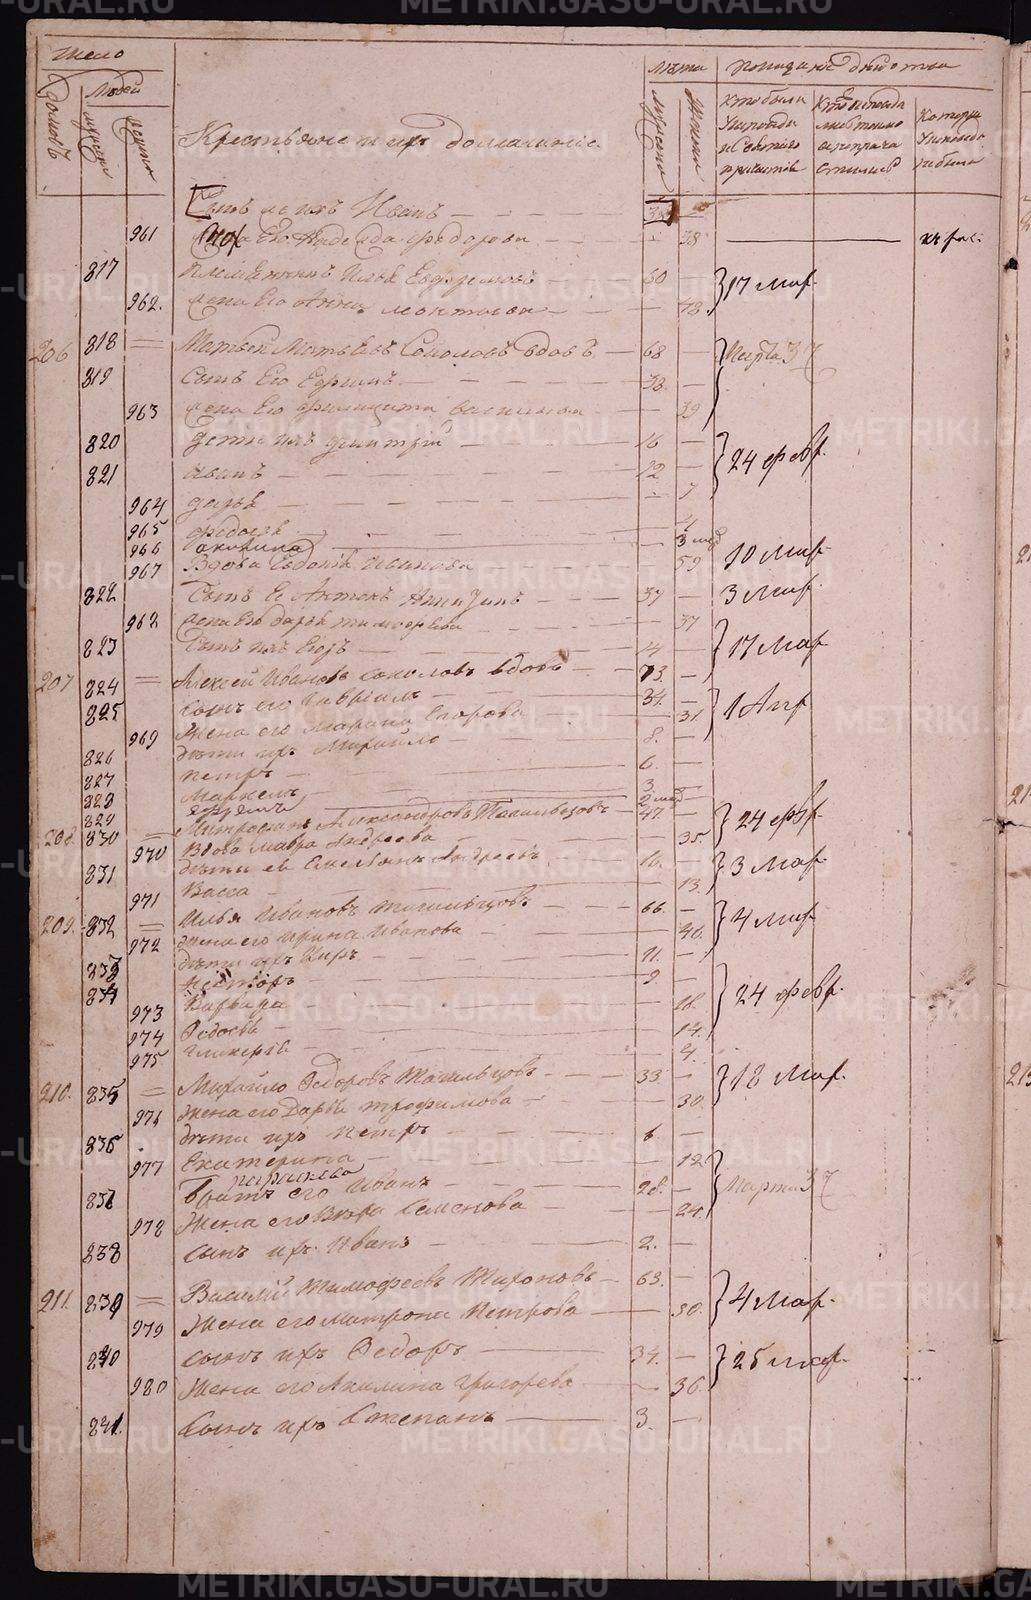 Число
Домовъ
Людей
мужеск
женска
Крестьяне и ихъ домашние
Лѣта
мужеска
женска
Показание бытия
Кто были у исповѣди и святаго причастия
Кто исповѣда
Которые у исповѣди не были
Сынъ ихъ Иванъ — 38 —
961 жена Его Надежда Федорова — 38
817 племянникъ Илья Ефремовъ — 60 — } 17 мар.
962. жена Его Анна Леонтьева —
206 818 = Матвей Матвеевъ Соколовъ вдовъ — 68 — } Марта 3
819 Сынъ Его Ефримъ — 38. —
963 жена Его Филицата Василиева — 39
820 Дѣти ихъ Димитрий — 16 — } 24 февр.
821 Иванъ — 12 —
964 Дарья — 7
965 Федосья — 4
966 Акилина — 3 мед
967 Вдова Евдокия Иванова — 59 } 10 Мар.
822 Сынъ Ее Антонъ — 37 — 3 Мар.
962 жена Его Дарья Тимофеева — 37
823 Сынъ ихъ — 14 — } 17 Мар
207 824 = Алексей Ивановъ Соколовъ вдовъ — 73. —
825 Сынъ его Гаврiилъ — 34. — } 1 Апр
969 Жена его Марина Егорова — 31.
826 Дѣти ихъ Михайло — 8. —
827 Петръ — 6. —
828 Маркелъ — 3. —
829 Ефремъ — 2 мед —
208. 830 = Митрофанъ Александровъ Тагильцовъ — 47. — } 24 фвр.
970 Вдова Мавра Андреева — 35.
831 Дѣти ея Емельянъ Андреевъ — 16. — } 3 Мар.
971 Васса — 13.
209. 832 = Илья Ивановъ Тагильцовъ — 66. — } 4 Мар.
972 Жена его Ирина Иванова — 40.
833 Дѣти ихъ Киръ — 11. —
834 Несторъ — 9 — } 24 февр.
973 Варвара — 18.
974 Федосья — 14.
975 Гликерiя — 4.
210. 835 = Михайло Федоровъ Тагильцовъ — 33 — } 18 Мар.
976 Жена его Дарья Трофимова — 30.
836 Дѣти ихъ Петръ — 6 —
977 Екатерина — 12.
837 Братъ его Иванъ — 28. — } Марта 3
978 Жена его Вѣра Семенова — 24.
838 Сынъ ихъ Иванъ — 2. —
211. 839 = Василiй Тимофеевъ Тихоновъ — 63. — } 4 Мар.
979 Жена его Матрона Петрова — 50.
840 Сынъ ихъ Федоръ — 34. — } 25 мар.
980 Жена его Акилина Григорева — 36.
841. Сынъ ихъ Степанъ — 3. —
METRIKI.GASO-URAL.RU